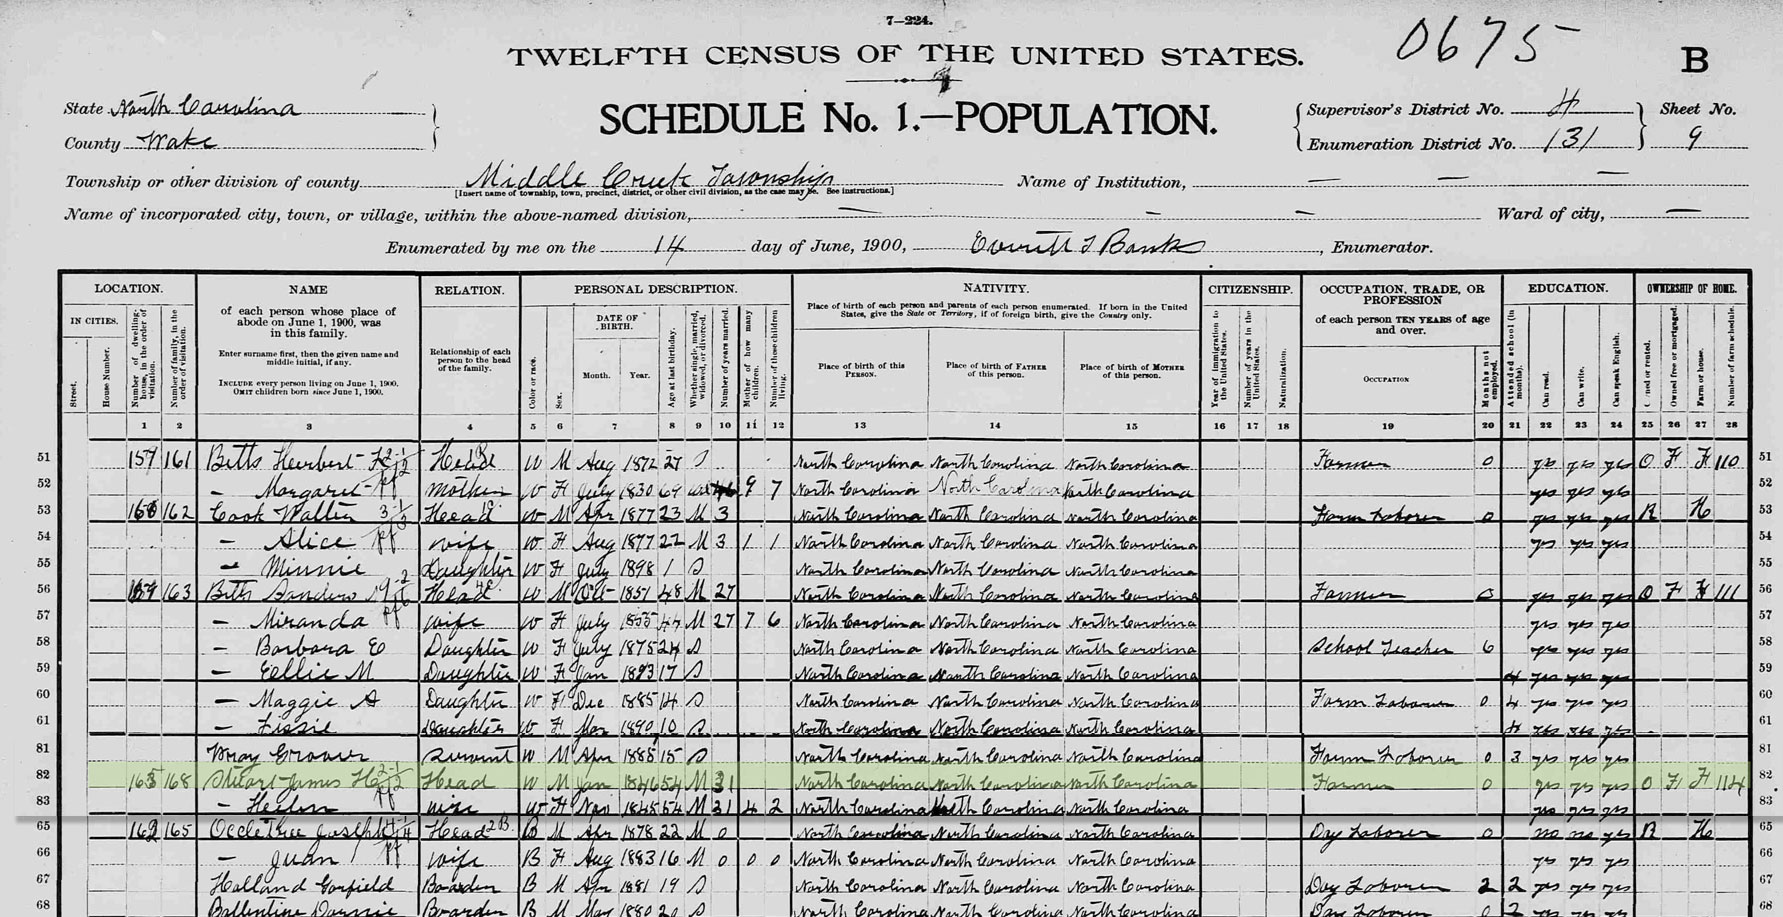 7—224.
TWELFTH CENSUS OF THE UNITED STATES.
0675
B
State North Carolina
County Wake
SCHEDULE No. 1.—POPULATION.
Supervisor's District No. 4
Enumeration District No. 131
Sheet No.
9
Township or other division of county Middle Creek Township
[Insert name of township, town, precinct, district, or other civil division, as the case may be. See instructions.]
Name of Institution, —
Name of incorporated city, town, or village, within the above-named division, —
Ward of city, —
Enumerated by me on the 14 day of June, 1900, Banks, Enumerator.
LOCATION.
IN CITIES.
Street.
House Number.
Number of dwelling-house, in the order of visitation.
Number of family, in the order of visitation.
NAME
of each person whose place of abode on June 1, 1900, was in this family.
Enter surname first, then the given name and middle initial, if any.
INCLUDE every person living on June 1, 1900.
OMIT children born since June 1, 1900.
RELATION.
Relationship of each person to the head of the family.
PERSONAL DESCRIPTION.
Color or race.
Sex.
DATE OF BIRTH.
Month.
Year.
Age at last birthday.
Whether single, married, widowed, or divorced.
Number of years married.
Mother of how many children.
Number of these children living.
NATIVITY.
Place of birth of each person and parents of each person enumerated. If born in the United States, give the State or Territory; if of foreign birth, give the Country only.
Place of birth of this PERSON.
Place of birth of FATHER of this person.
Place of birth of MOTHER of this person.
CITIZENSHIP.
Year of immigration to the United States.
Number of years in the United States.
Naturalization.
OCCUPATION, TRADE, OR PROFESSION
of each person TEN YEARS of age and over.
OCCUPATION
Months not employed.
EDUCATION.
Attended school (in months).
Can read.
Can write.
Can speak English.
OWNERSHIP OF HOME.
Owned or rented.
Owned free or mortgaged.
Farm or house.
Number of farm schedule.
1 2 3 4 5 6 7 8 9 10 11 12 13 14 15 16 17 18 19 20 21 22 23 24 25 26 27 28
51 157 161 Betts Herbert Head W M Aug 1872 27 S North Carolina North Carolina North Carolina Farmer 0 yes yes yes O F F 110 51
52 — Margaret Mother W F July 1830 69 9 7 North Carolina North Carolina North Carolina yes yes yes 52
53 158 162 Cook Walter Head W M Apr 1877 23 M 3 North Carolina North Carolina North Carolina Farm Laborer 0 yes yes yes R H 53
54 — Alice Wife W F Aug 1877 22 M 3 1 1 North Carolina North Carolina North Carolina yes yes yes 54
55 — Minnie Daughter W F July 1898 1 S North Carolina North Carolina North Carolina 55
56 159 163 Betts Head W M Oct 1851 48 M 27 North Carolina North Carolina North Carolina Farmer 0 yes yes yes O F F 111 56
57 — Miranda Wife W F July 1855 44 M 27 7 6 North Carolina North Carolina North Carolina yes yes yes 57
58 — Barbara E Daughter W F July 1875 24 S North Carolina North Carolina North Carolina School Teacher 6 yes yes yes 58
59 — Eellie M Daughter W F Jan 1883 17 S North Carolina North Carolina North Carolina 4 yes yes yes 59
60 — Maggie A Daughter W F Dec 1885 14 S North Carolina North Carolina North Carolina Farm Laborer 0 4 yes yes yes 60
61 — Daughter W F Mar 1890 10 S North Carolina North Carolina North Carolina 4 yes yes yes 61
81 Wray Grover Servant W M Apr 1885 15 S North Carolina North Carolina North Carolina Farm Laborer 0 3 yes yes yes 81
82 163 168 Stuart James H Head W M Jan 1846 54 M 31 North Carolina North Carolina North Carolina Farmer 0 yes yes yes O F F 114 82
83 — Helen Wife W F Nov 1845 54 M 31 4 2 North Carolina North Carolina North Carolina yes yes 83
65 162 165 Joseph Head B M Apr 1878 22 M 0 North Carolina North Carolina North Carolina Day Laborer 0 no no yes R H 65
66 — Juan Wife B F Aug 1883 16 M 0 0 0 North Carolina North Carolina North Carolina yes yes yes 66
67 Holland Garfield Boarder B M Apr 1881 19 S North Carolina North Carolina North Carolina Day Laborer 2 2 yes yes yes 67
68 Ballentine Boarder B M May 1880 20 S North Carolina North Carolina North Carolina Day Laborer 0 2 yes yes yes 68